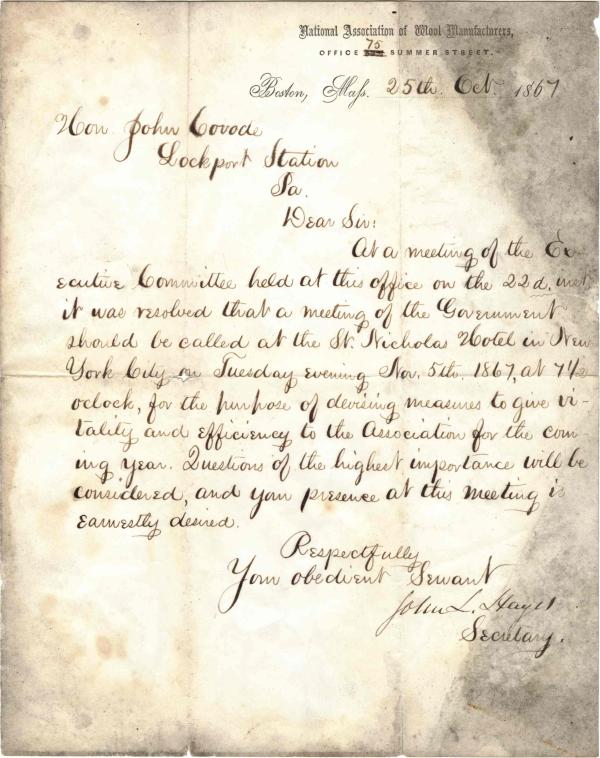 National Association of Wool Manufacturers,
75
OFFICE SUMMER STREET.
Boston, Mass. 25th. Oct. 1867
Hon John Covode
Lockport Station
Pa.
Dear Sir:
At a meeting of the Ex-
ecutive Committee held at this office on the 22d. inst.
it was resolved that a meeting of the Government
should be called at the St. Nicholas Hotel in New
York City on Tuesday evening Nov. 5th. 1867, at 7 1/2
oclock, for the purpose of devising measures to give vi-
tality and efficiency to the Association for the com-
ing year. Questions of the highest importance will be
considered, and your presence at this meeting is
earnestly desired.
Respectfully
Your obedient Servant
John L. Hayes
Secretary.